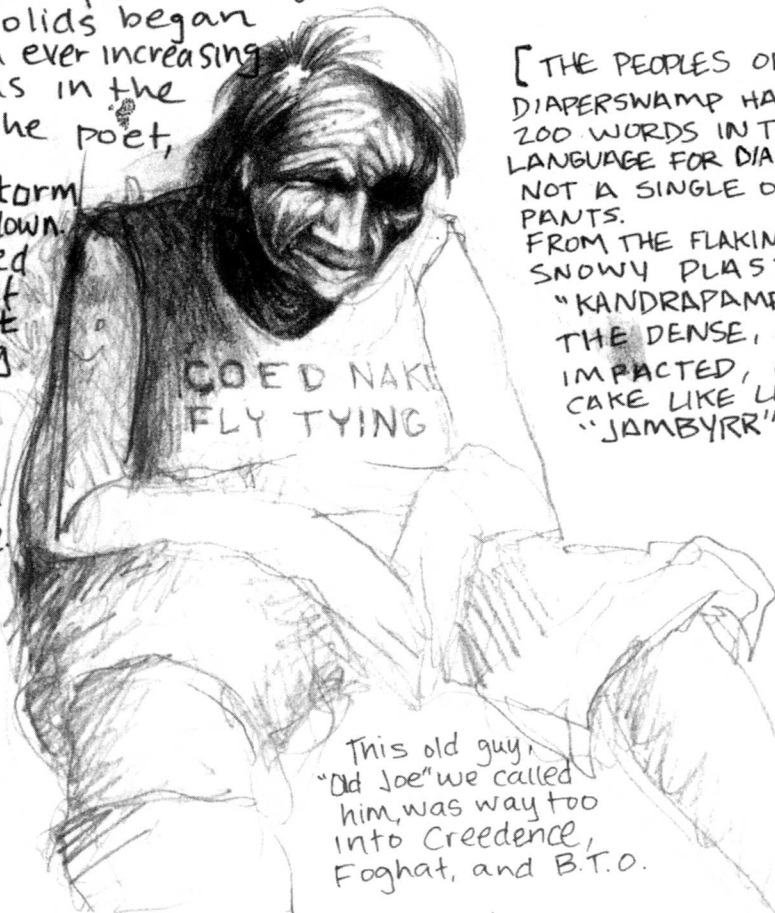 olids began
ever increasing
s in the
he poet,
torm
down.
ed
t
t
g
[THE PEOPLES O
DIAPERSWAMP HA
200 WORDS IN T
LANGUAGE FOR DIA
NOT A SINGLE O
PANTS.
FROM THE FLAKIN
SNOWY PLAS
"KANDRAPAMP
THE DENSE,
IMPACTED,
CAKE LIKE L
"JAMBYRR"
COED NAK
FLY TYING
This old guy,
"Old Joe" we called
him, was way too
into Creedence,
Foghat, and B.T.O.